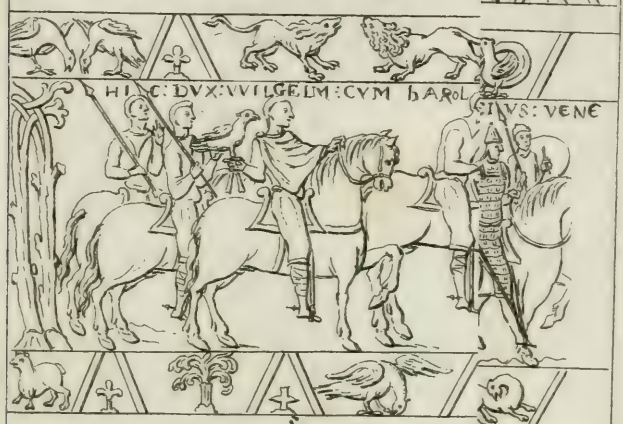 HIC: DVX: VVILGELM: CVM hAROL
SIVS: VENE